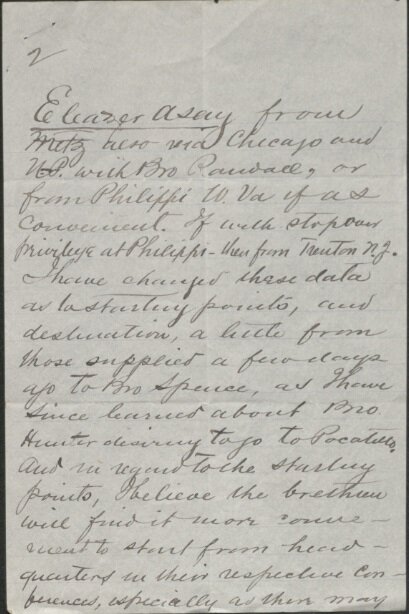 2
Eleazer Asay from
Metz here via Chicago and
U.P. with Bro Randall, or
from Philippi W. Va if as
convenient. If with stopover
privilege at Philippi - then from Trenton N.J.
I have changed these data
as to starting points, and
destination, a little from
those supplied a few days
ago to Bro Spence, as I have
since learned about Bro
Hunter desiring to go to Pocatello.
And in regard to the starting
points, I believe the brethren
will find it more conve-
nient to start from head-
quarters in their respective con-
ferences, especially as there may